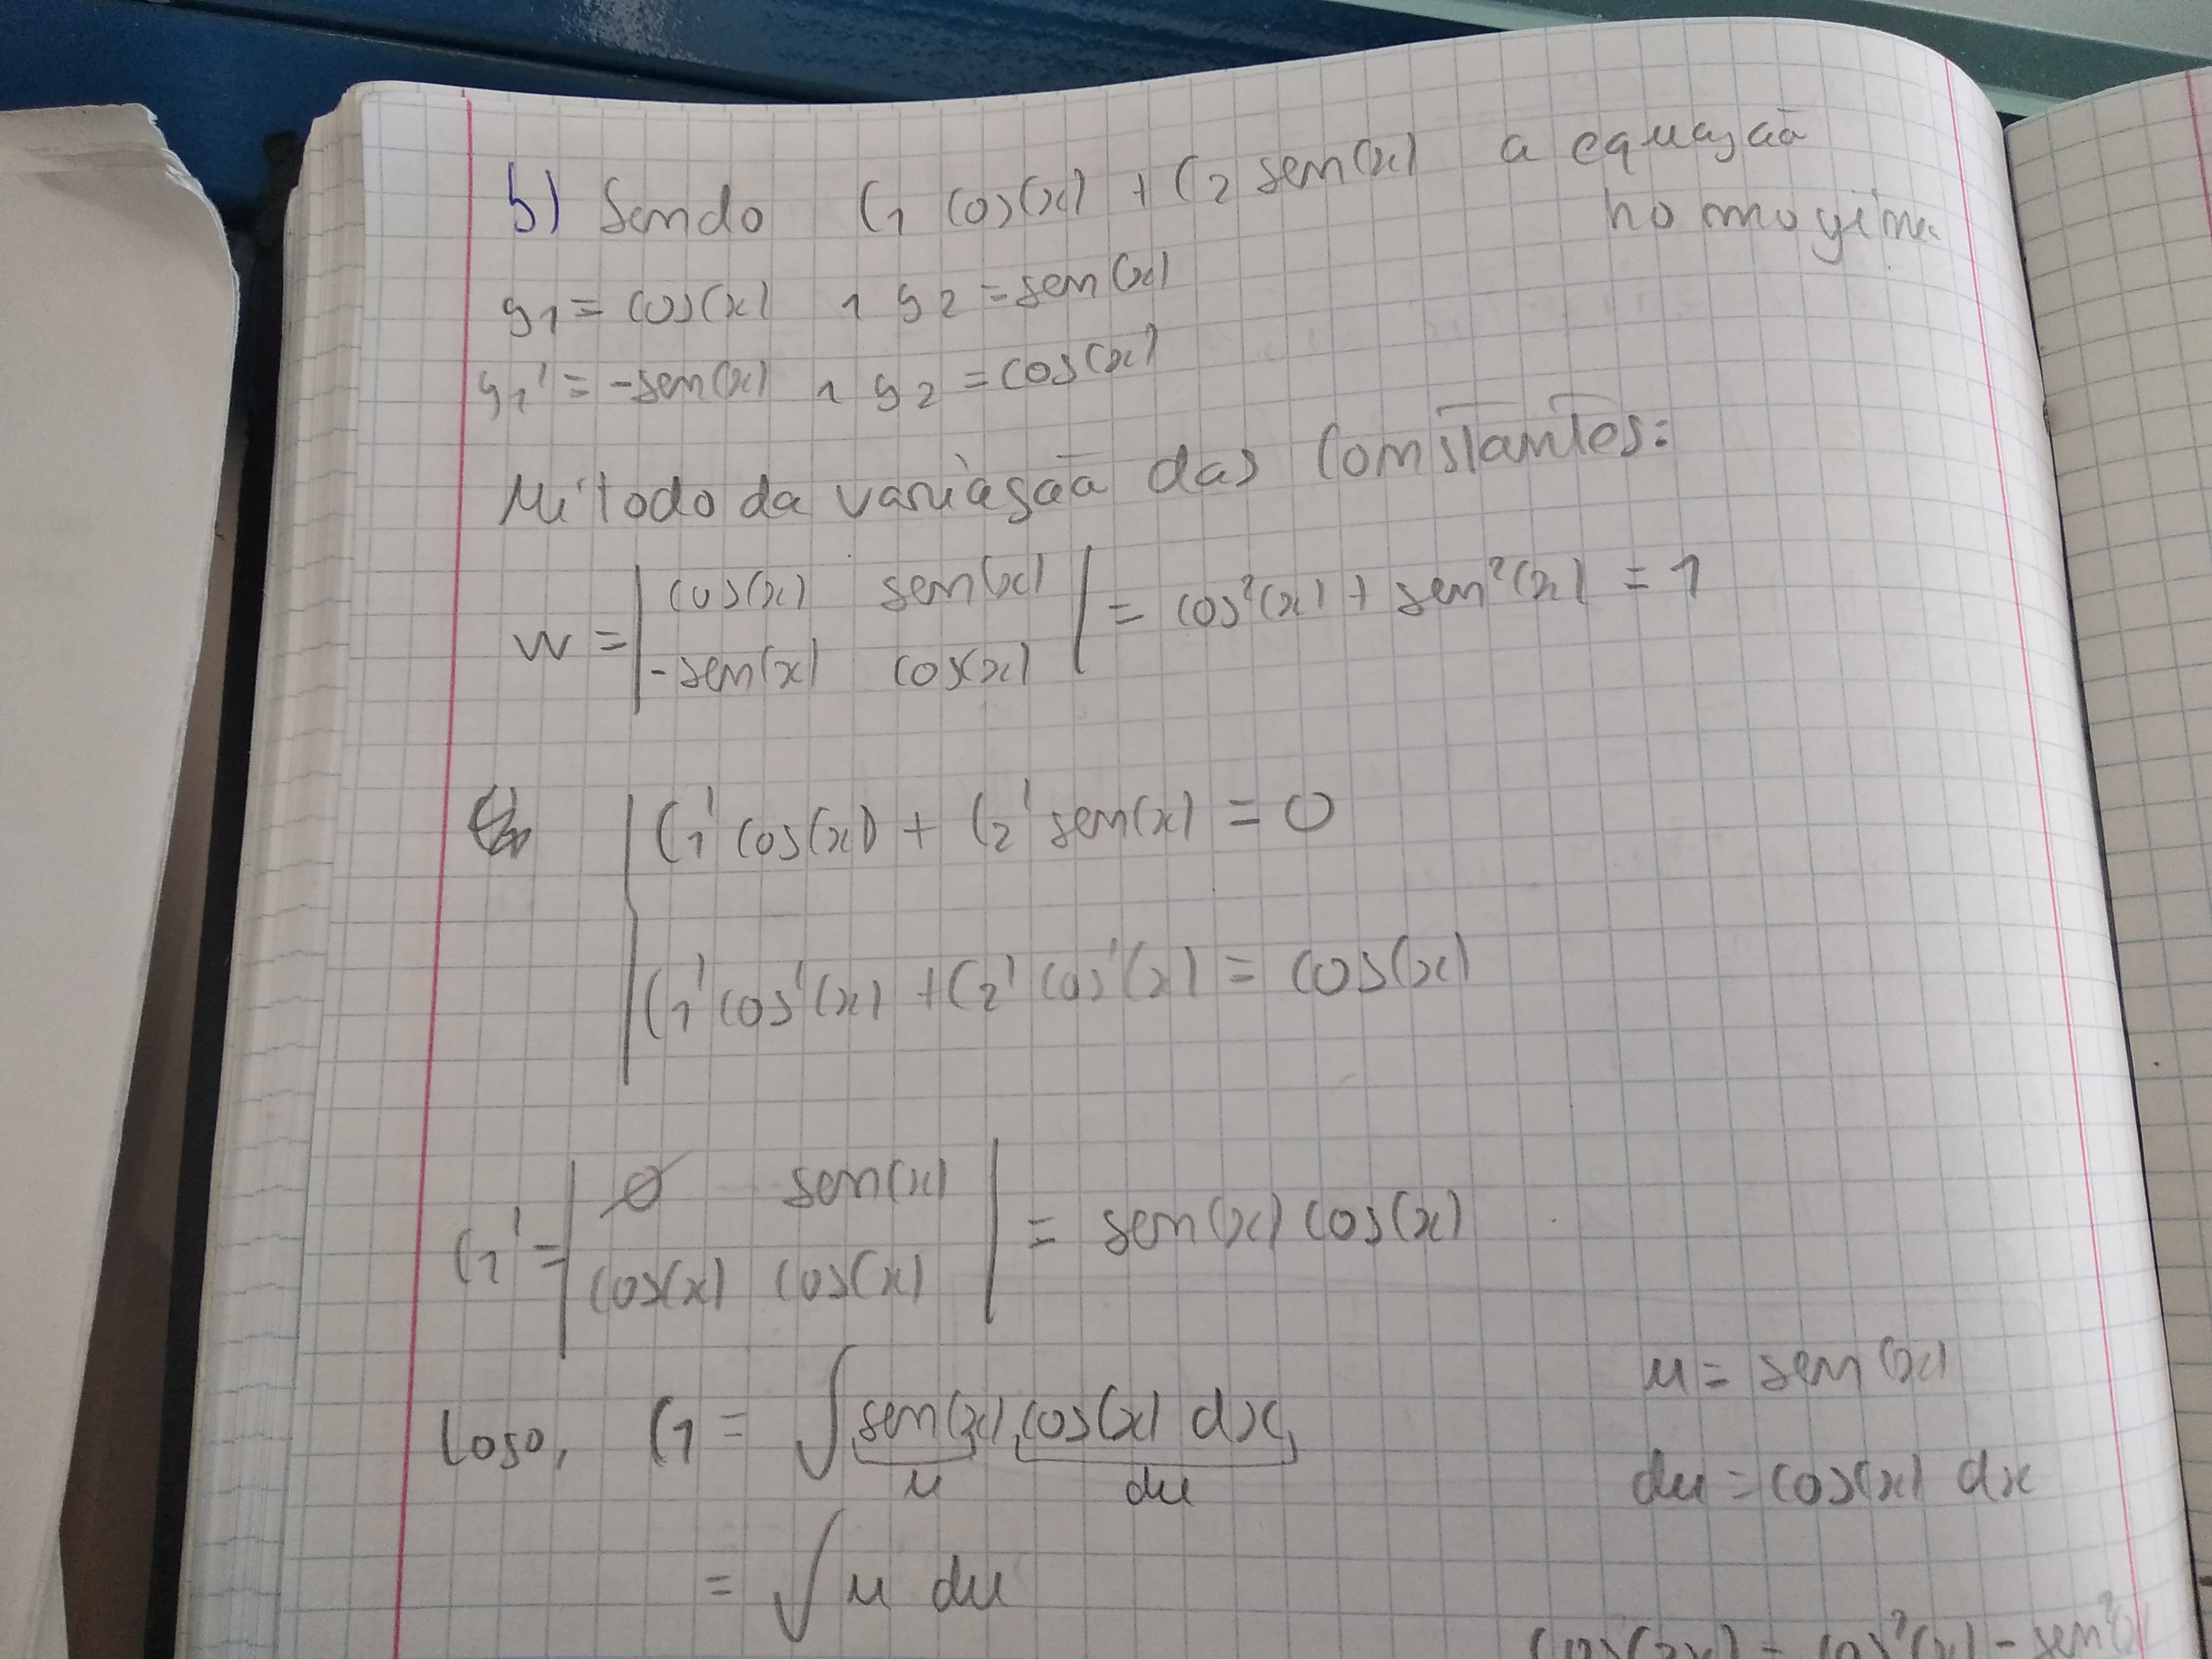 b) Sendo C1 cos(x) + C2 sen(x) a equação
homogénea
y1 = cos(x) , y2 = sen(x)
y1' = -sen(x) , y2 = cos(x)
Método da variação das Constantes:
W = | cos(x) sen(x) | = cos²(x) + sen²(x) = 1
| -sen(x) cos(x) |
C1' cos(x) + C2' sen(x) = 0
C1' cos'(x) + C2' cos'(x) = cos(x)
C1' = | 0 sen(x) | = sen(x) cos(x)
| cos(x) cos(x) |
u = sen(x)
Logo, C1 = ∫ sen(x) cos(x) dx
u du
du = cos(x) dx
= ∫ u du
cos(2x) = cos²(x) - sen²(x)